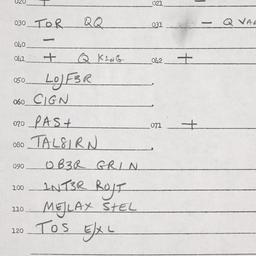 020 + 021
030 TOR QQ 031 — Q VA
040 —
041 + Q KING 042 +
050 LOJF3R
060 CIGN
070 PAS+ 071 +
080 TAL8IRN
090 OB3R GRIN
100 INT3R ROJT
110 MEJLAX STEL
120 TOS EJXL